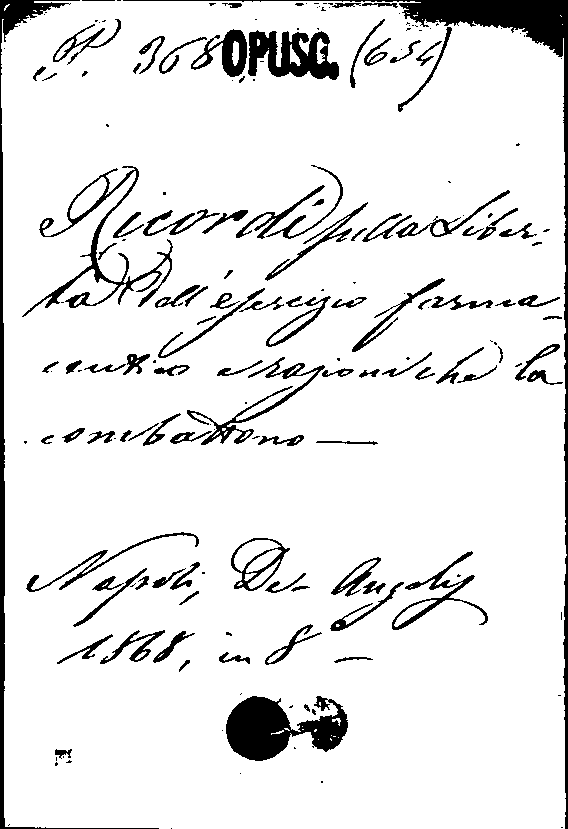 P. 368 OPUSC. (654)
Ricordi sulla Liber-
tà dell'esercizio farma-
ceutico e ragioni che la
combattono —
Napoli, De Angelis
1868, in 8° —